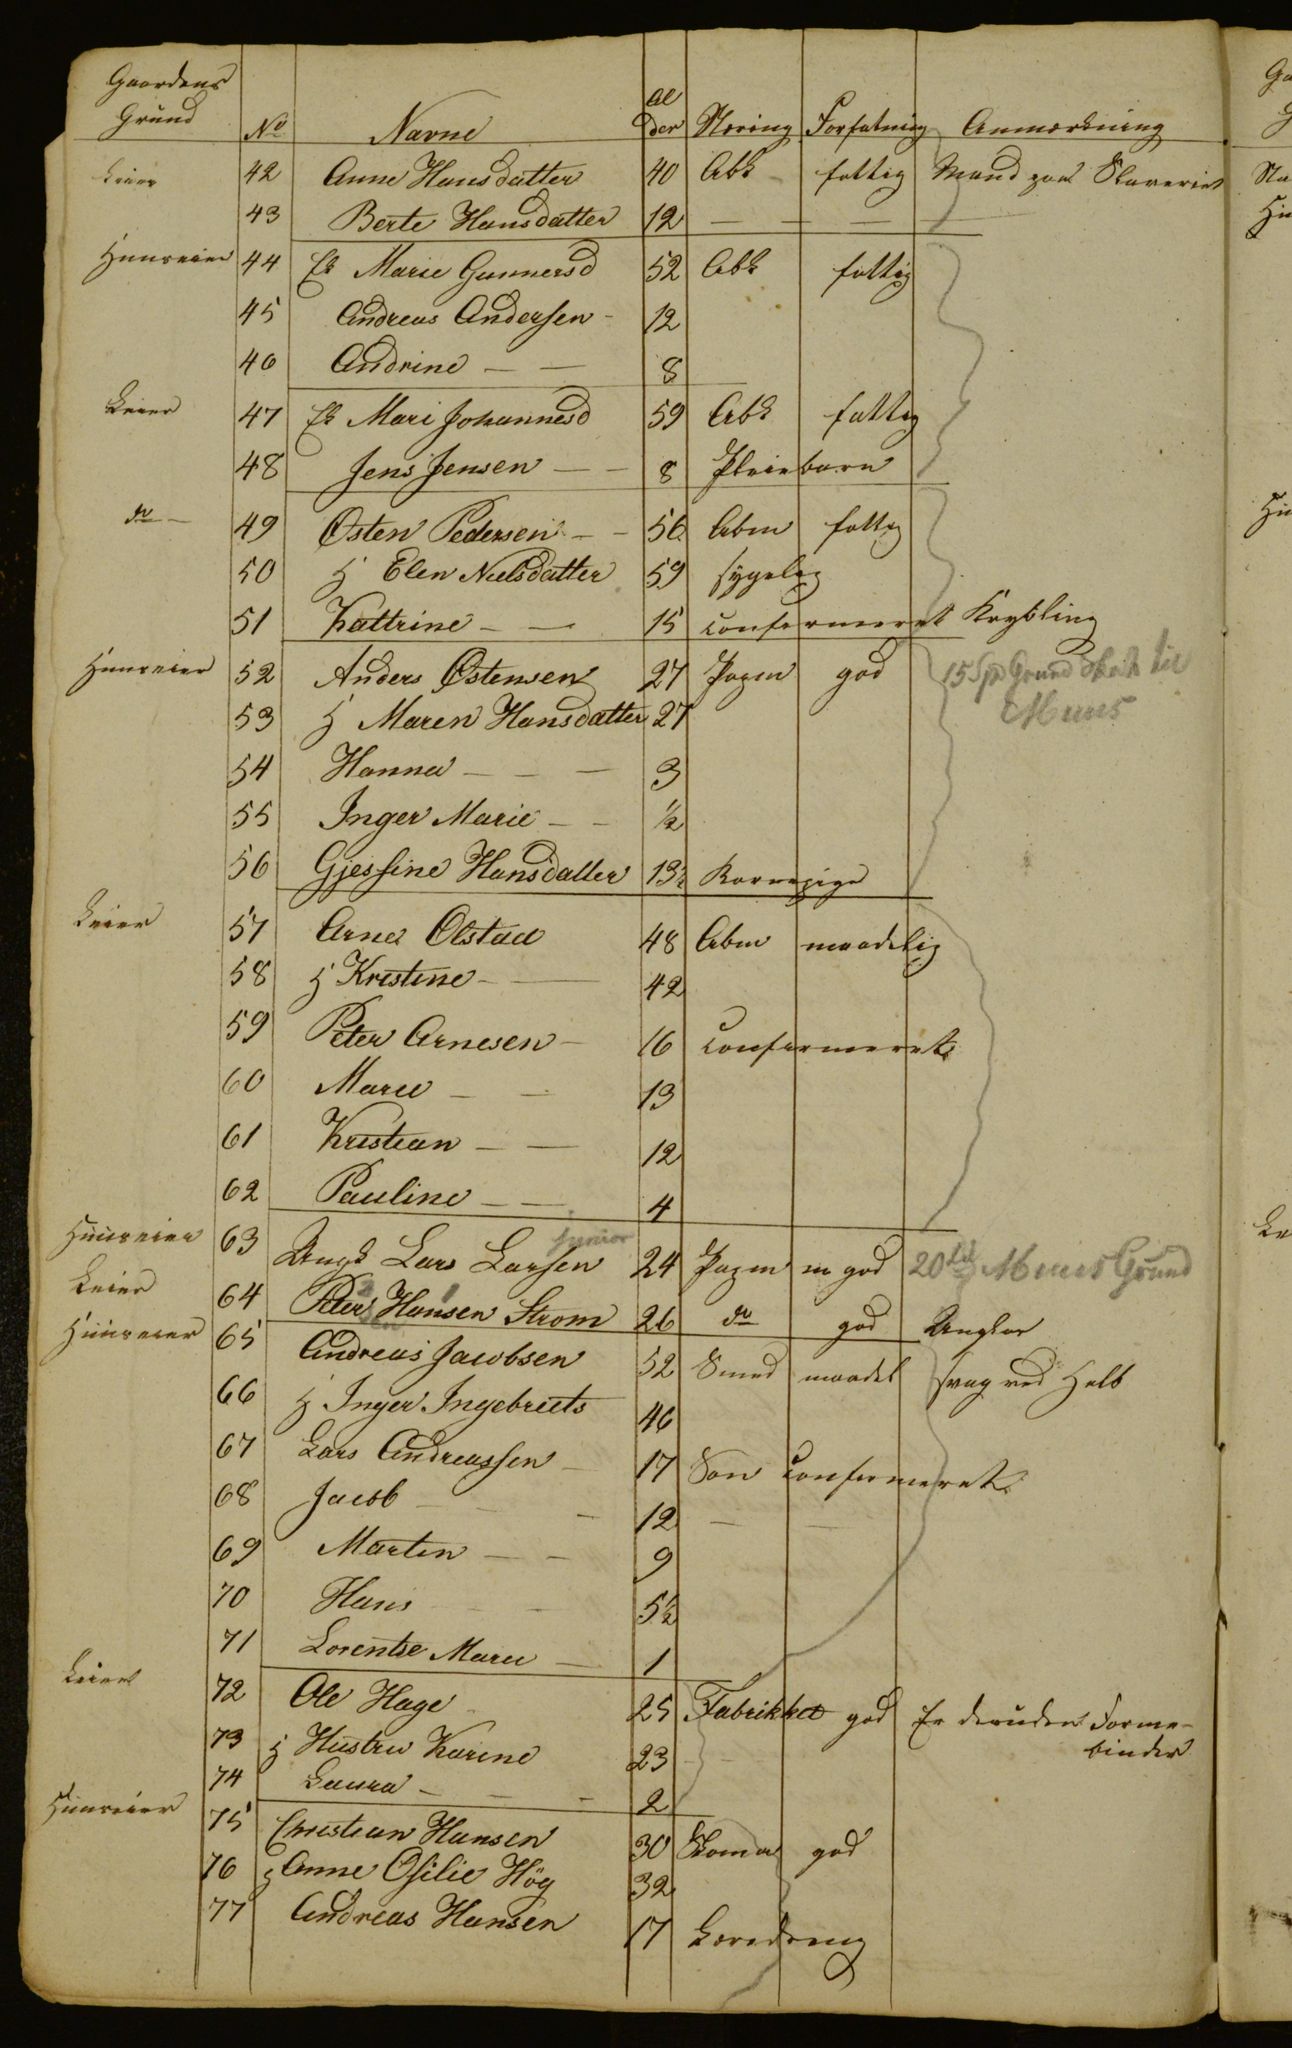 Gaardens
Grund No Navne Al
der Næring Forfatning Anmærkning
Leier 42 Anne Hansdatter 40 Abk - fattig Mand paa Slaveriet
43 Berte Hansdatter 12 — — — —
Huuseier 44 Ek Marie Gunnersd 52 Abk fattig
45 Andreas Andersen - 12
46 Andrine — — 8
Leier 47 Ek Mari Johannesd 59 Abk fattig
48 Jens Jensen — — 8 Pleiebarn
do — 49 Østen Pedersen — — 56 Abm fattig
50 H Elen Nielsdatter 59 sygelig
51 Kattrine — — 15 confirmeret Krybling
Huuseier 52 Anders Østensen 27 Pagm god 15 Sp Grund til
53 H Maren Hansdatter 27 Muus
54 Hanna — — — 3
55 Inger Marie — — ½
56 Gjessine Hansdatter 13½ Barnepige
Leier 57 Arne Olstad 48 Abm maadelig
58 H Kristine — — 42
59 Peter Arnesen — 16 confirmeret
60 Marie — — 13
61 Kristian — — 12
62 Pauline — — 4
Huuseier 63 Ungk Lars Larsen junior 24 Pagm m god 20 til Muus Grund
Leier 64 Peter Hansen Strom 26 do god Ungkar
Huuseier 65 Andreas Jacobsen 52 Smed maadel svag ved Helb
66 H Inger Ingebrets 46
67 Lars Andreassen — 17 Søn confirmeret
68 Jacob — — — 12 — —
69 Marten — — 9
70 Hans — — 5½
71 Lorentse Marie — 1
Leier 72 Ole Hage 25 Fabrikket god Er desuden Forme-
binder
73 H Hustru Karine 23 — —
74 Laura — — — 2
Huuseier 75 Christian Hansen 30 Skoma god
76 H Anne Osilie Hög 32
77 Andreas Hansen 17 Læredreng